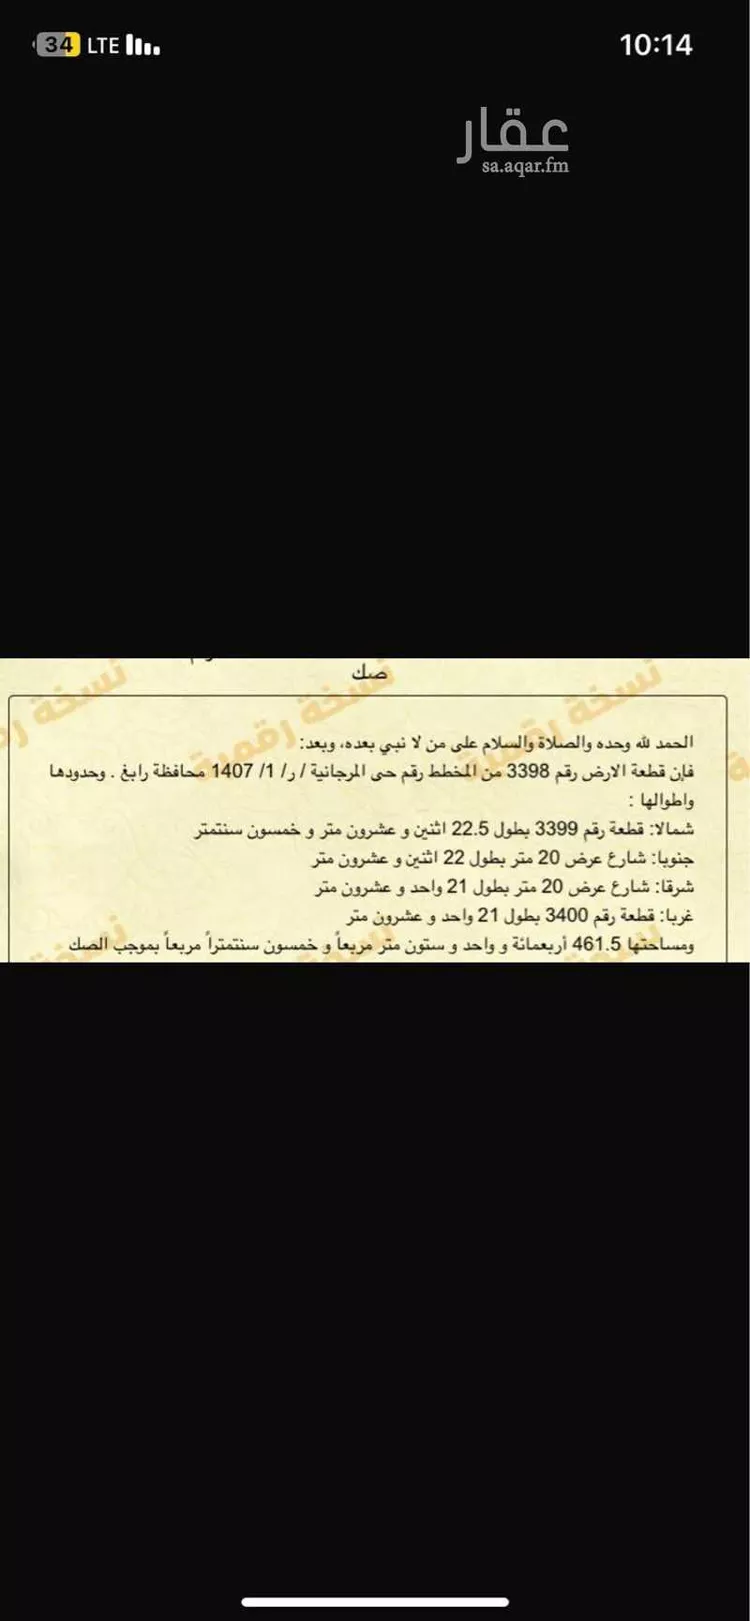 10:14
LTE 34
عقار
sa.aqar.fm
صك
نسخة رقمية نسخة رقمية نسخة
الحمد لله وحده والصلاة والسلام على من لا نبي بعده، وبعد:
فإن قطعة الارض رقم 3398 من المخطط رقم حى المرجانية / ر/ 1/ 1407 محافظة رابغ . وحدودها
واطوالها :
شمالا: قطعة رقم 3399 بطول 22.5 اثنين و عشرون متر و خمسون سنتمتر
جنوبا: شارع عرض 20 متر بطول 22 اثنين و عشرون متر
شرقا: شارع عرض 20 متر بطول 21 واحد و عشرون متر
غربا: قطعة رقم 3400 بطول 21 واحد و عشرون متر
ومساحتها 461.5 أربعمائة و واحد و ستون متر مربعاً و خمسون سنتمتراً مربعاً بموجب الصك